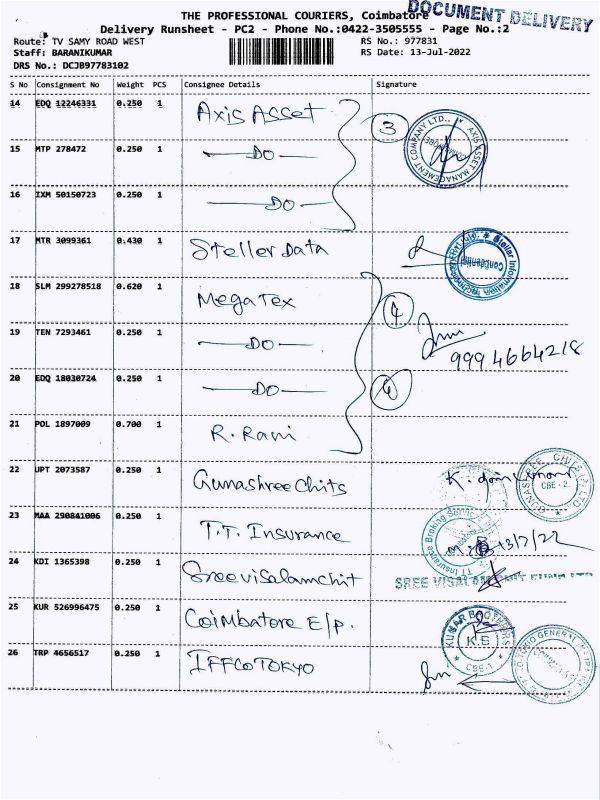 DOCUMENT DELIVERY
THE PROFESSIONAL COURIERS, Coimbatore
Delivery Runsheet - PC2 - Phone No.:0422-3505555 - Page No.:2
Route: TV SAMY ROAD WEST RS No.: 977831
Staff: BARANIKUMAR RS Date: 13-Jul-2022
DRS No.: DCJB97783102
S No Consignment No Weight PCS Consignee Details Signature
14 EDQ 12246331 0.250 1 Axis Asset
3
AXIS ASSET MANAGEMENT COMPANY LTD.,
15 MTP 278472 0.250 1 DO
16 IXM 50150723 0.250 1 DO
17 MTR 3099361 0.430 1 Steller Data
Stellar Information Technology Pvt. Ltd.
Confidential
18 SLM 299278518 0.620 1 Mega Tex
4
19 TEN 7293461 0.250 1 DO
9994664218
20 EDQ 18030724 0.250 1 DO
21 POL 1897009 0.700 1 R. Rani
22 UPT 2073587 0.250 1 Gunashree Chits
GUNASREE CHITS (P) LTD
CBE - 2.
23 MAA 290841006 0.250 1 T.T. Insurance
TT Insurance Broking Services
13/7/22
24 KDI 1365398 0.250 1 Sreevisalamchit
SREE VISAL
25 KUR 526996475 0.250 1 Coimbatore E/P.
KUMAR BROTHERS
K.B
CBE-1
26 TRP 4656517 0.250 1 IFFCO TOKYO
GENERAL INSURANCE